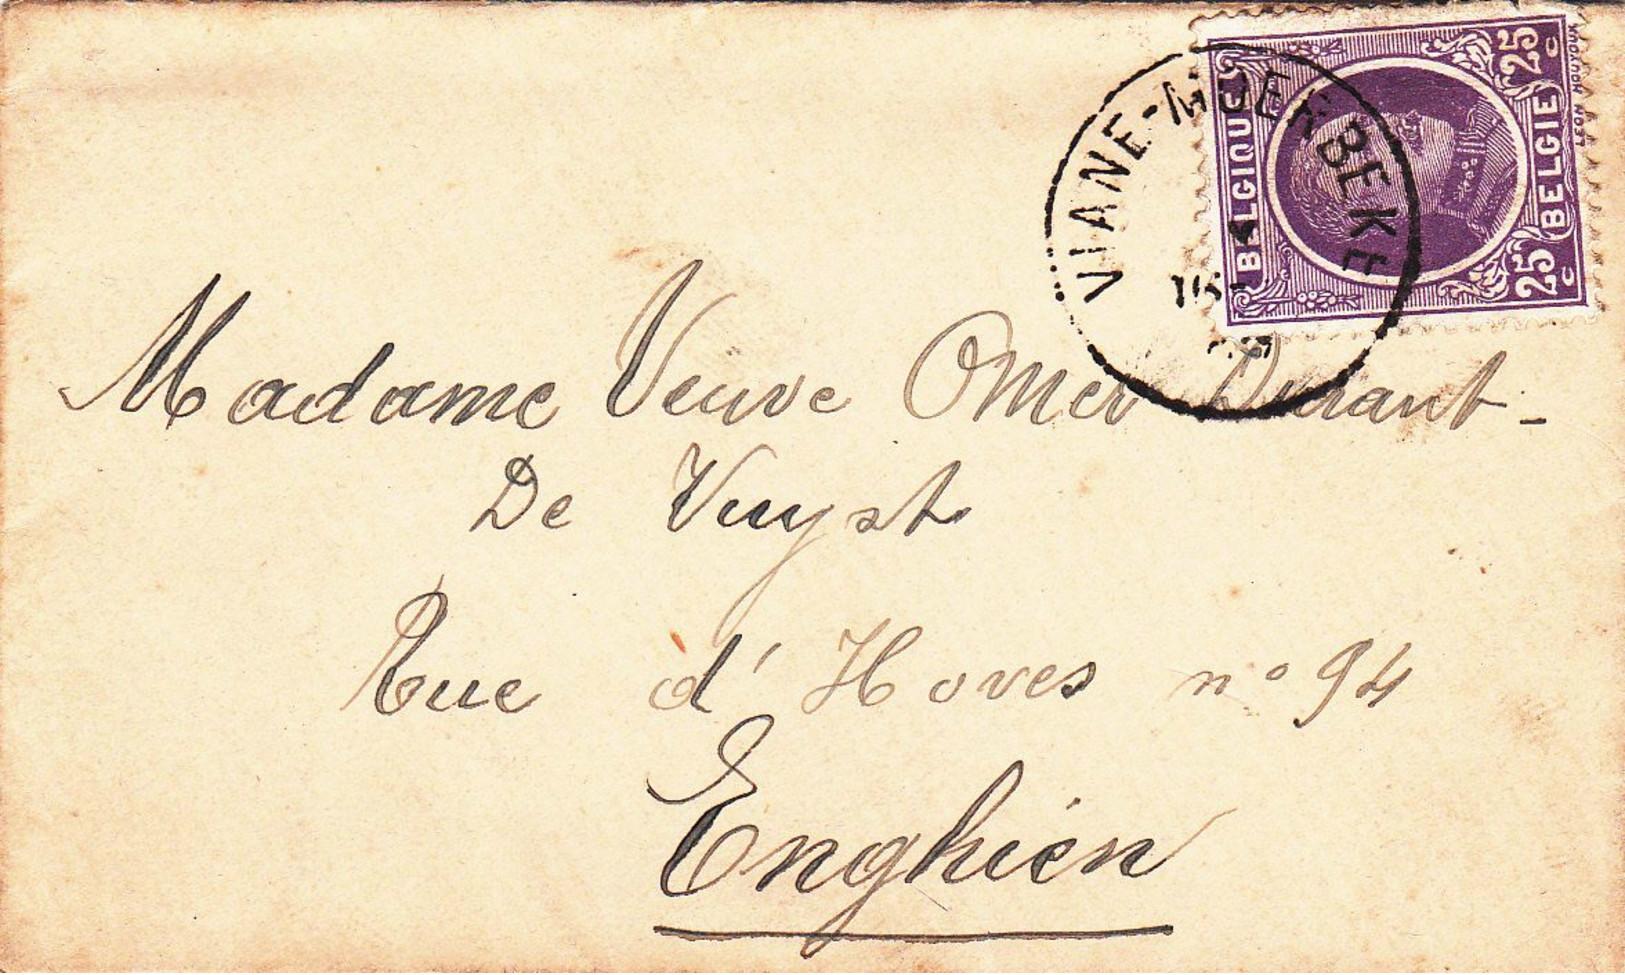 BELGIQUE
25 c BELGIE 25 c
VIANE-MOERBEKE
Madame Veuve Omer Durant-
De Vuyst
Rue d'Hoves n° 94
Enghien